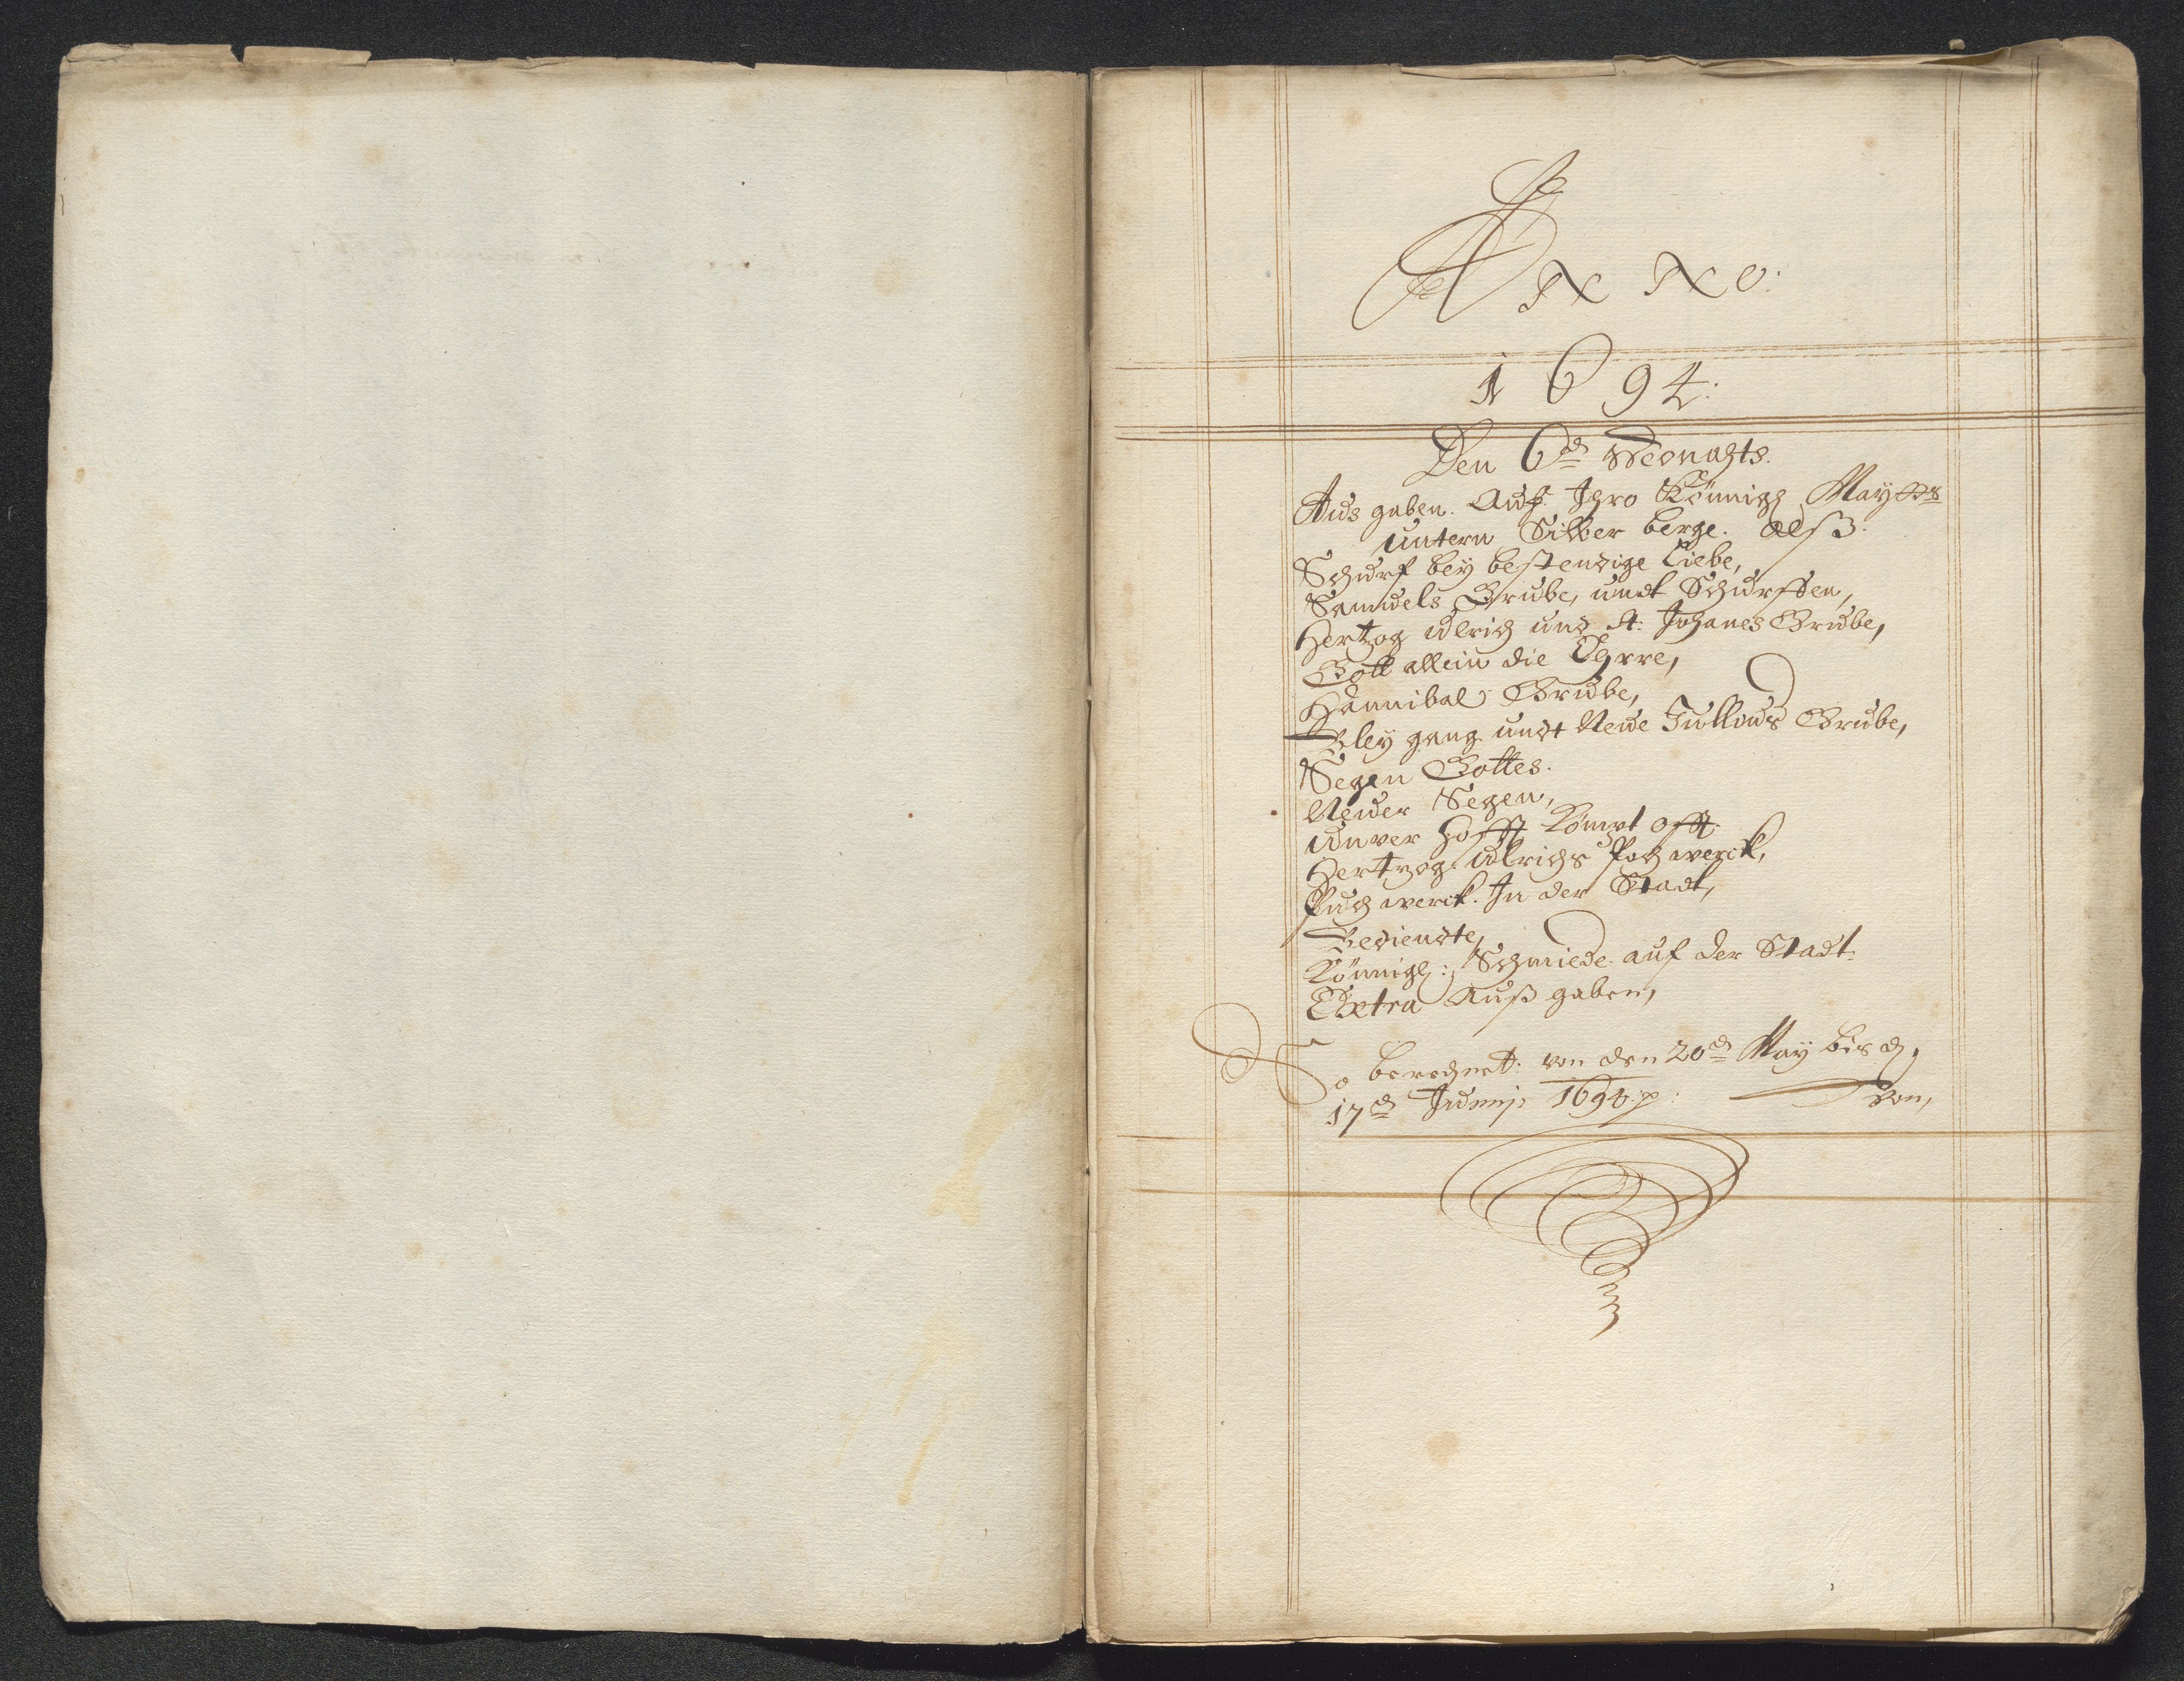 Anno:
1694:
Den 6ᵈ Monahts.
Aus gaben. Auf: Ihro Könnigl Mayᵗᵗˢ
untern Silber berge. alß:
Schurf beÿ bestendige Liebe,
Samuels Grube, undt Schurffen,
Hertzog Ulrich und St: Johanes Grube,
Gott allein die Ehrre,
Hannibal Grube,
Bleÿ gang undt Neue Jullous Grube,
Segen Gottes.
Neuer Segen,
Unver hofft Kömpt offt
Hertzog Ulrichs Poch werck,
Puch werck. In der Stadt,
Bediendte,
Könnigl: Schmiede auf der Stadt.
Extra Auß gaben,
So berechnet: von den 20ᵈ Maÿ bis d,
17ᵈ Junnj: 1694. p: Von,